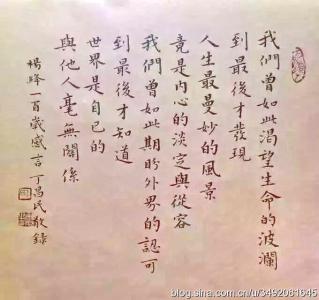 我們曾如此渴望生命的波瀾
到最後才發現
人生最曼妙的風景
竟是內心的淡定與從容
我們曾如此期盼外界的認可
到最後才知道
世界是自己的
與他人毫無關係
楊絳一百歲感言 丁昌民敬錄
blog.sina.com.cn/u/3492081645